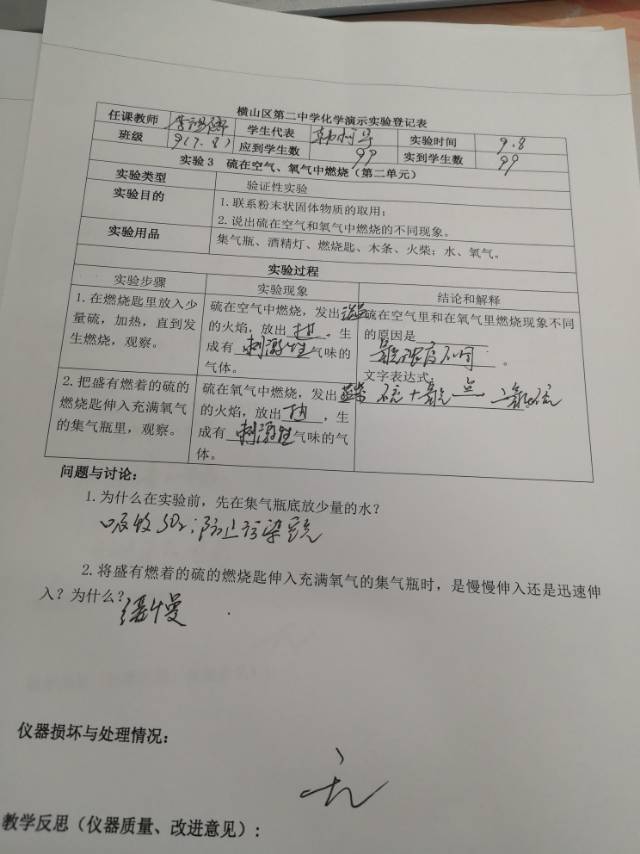 横山区第二中学化学演示实验登记表
任课教师 学生代表 实验时间 9.8
班级 9(7.8) 应到学生数 99 实到学生数 99
实验3 硫在空气、氧气中燃烧(第二单元)
实验类型 验证性实验
实验目的 1.联系粉末状固体物质的取用;
2.说出硫在空气和氧气中燃烧的不同现象。
实验用品 集气瓶、酒精灯、燃烧匙、木条、火柴;水、氧气。
实验过程
实验步骤 实验现象 结论和解释
1.在燃烧匙里放入少
量硫,加热,直到发
生燃烧,观察。
硫在空气中燃烧,发出
的火焰,放出 热 ,生
成有 刺激性 气味的
气体。
硫在空气里和在氧气里燃烧现象不同
的原因是
氧气浓度不同 。
文字表达式
硫+氧气 点 二氧化硫
2.把盛有燃着的硫的
燃烧匙伸入充满氧气
的集气瓶里,观察。
硫在氧气中燃烧,发出
的火焰,放出 热 ,生
成有 刺激性 气味的气
体。
问题与讨论:
1.为什么在实验前,先在集气瓶底放少量的水?
吸收SO₂;防止污染空气
2.将盛有燃着的硫的燃烧匙伸入充满氧气的集气瓶时,是慢慢伸入还是迅速伸
入?为什么?
缓慢
仪器损坏与处理情况:
无
教学反思(仪器质量、改进意见):